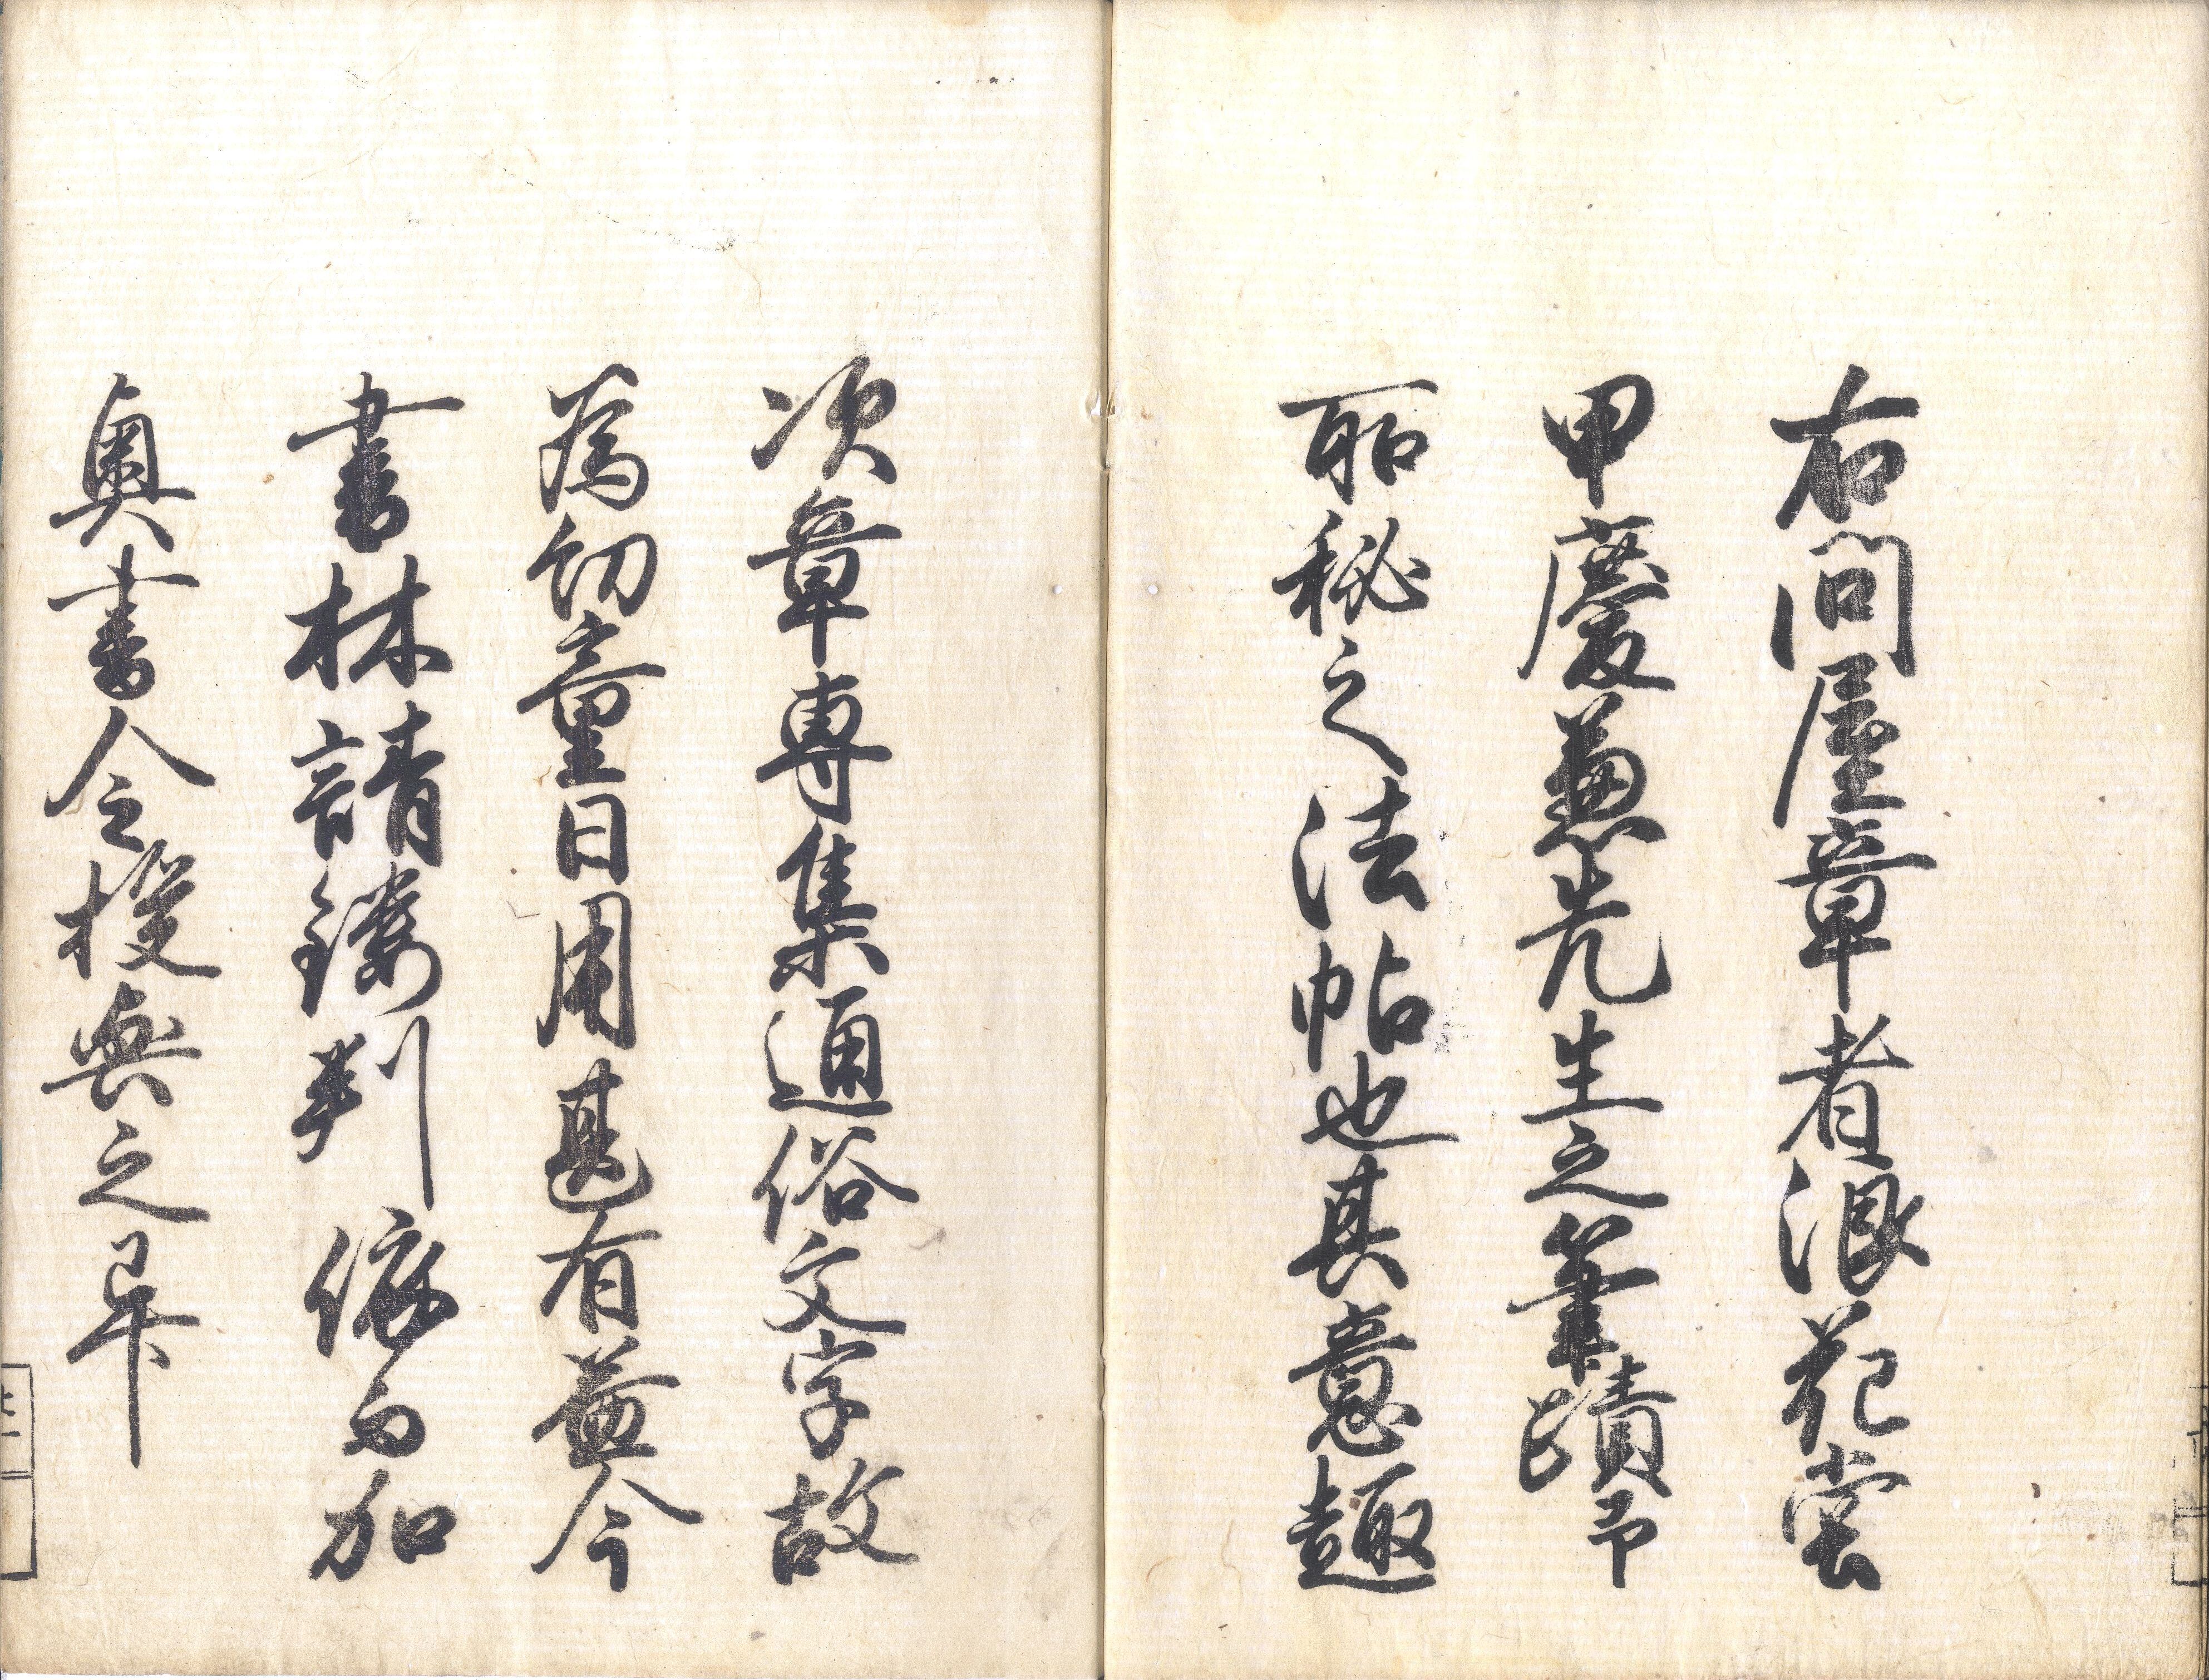 右問屋章者浪花堂
甲慶兼先生之筆蹟予
所秘之法帖也其意趣
次章専集通俗文字故
為幼童日用甚有益今
書林請鏤判依而加
奥書令授與之畢